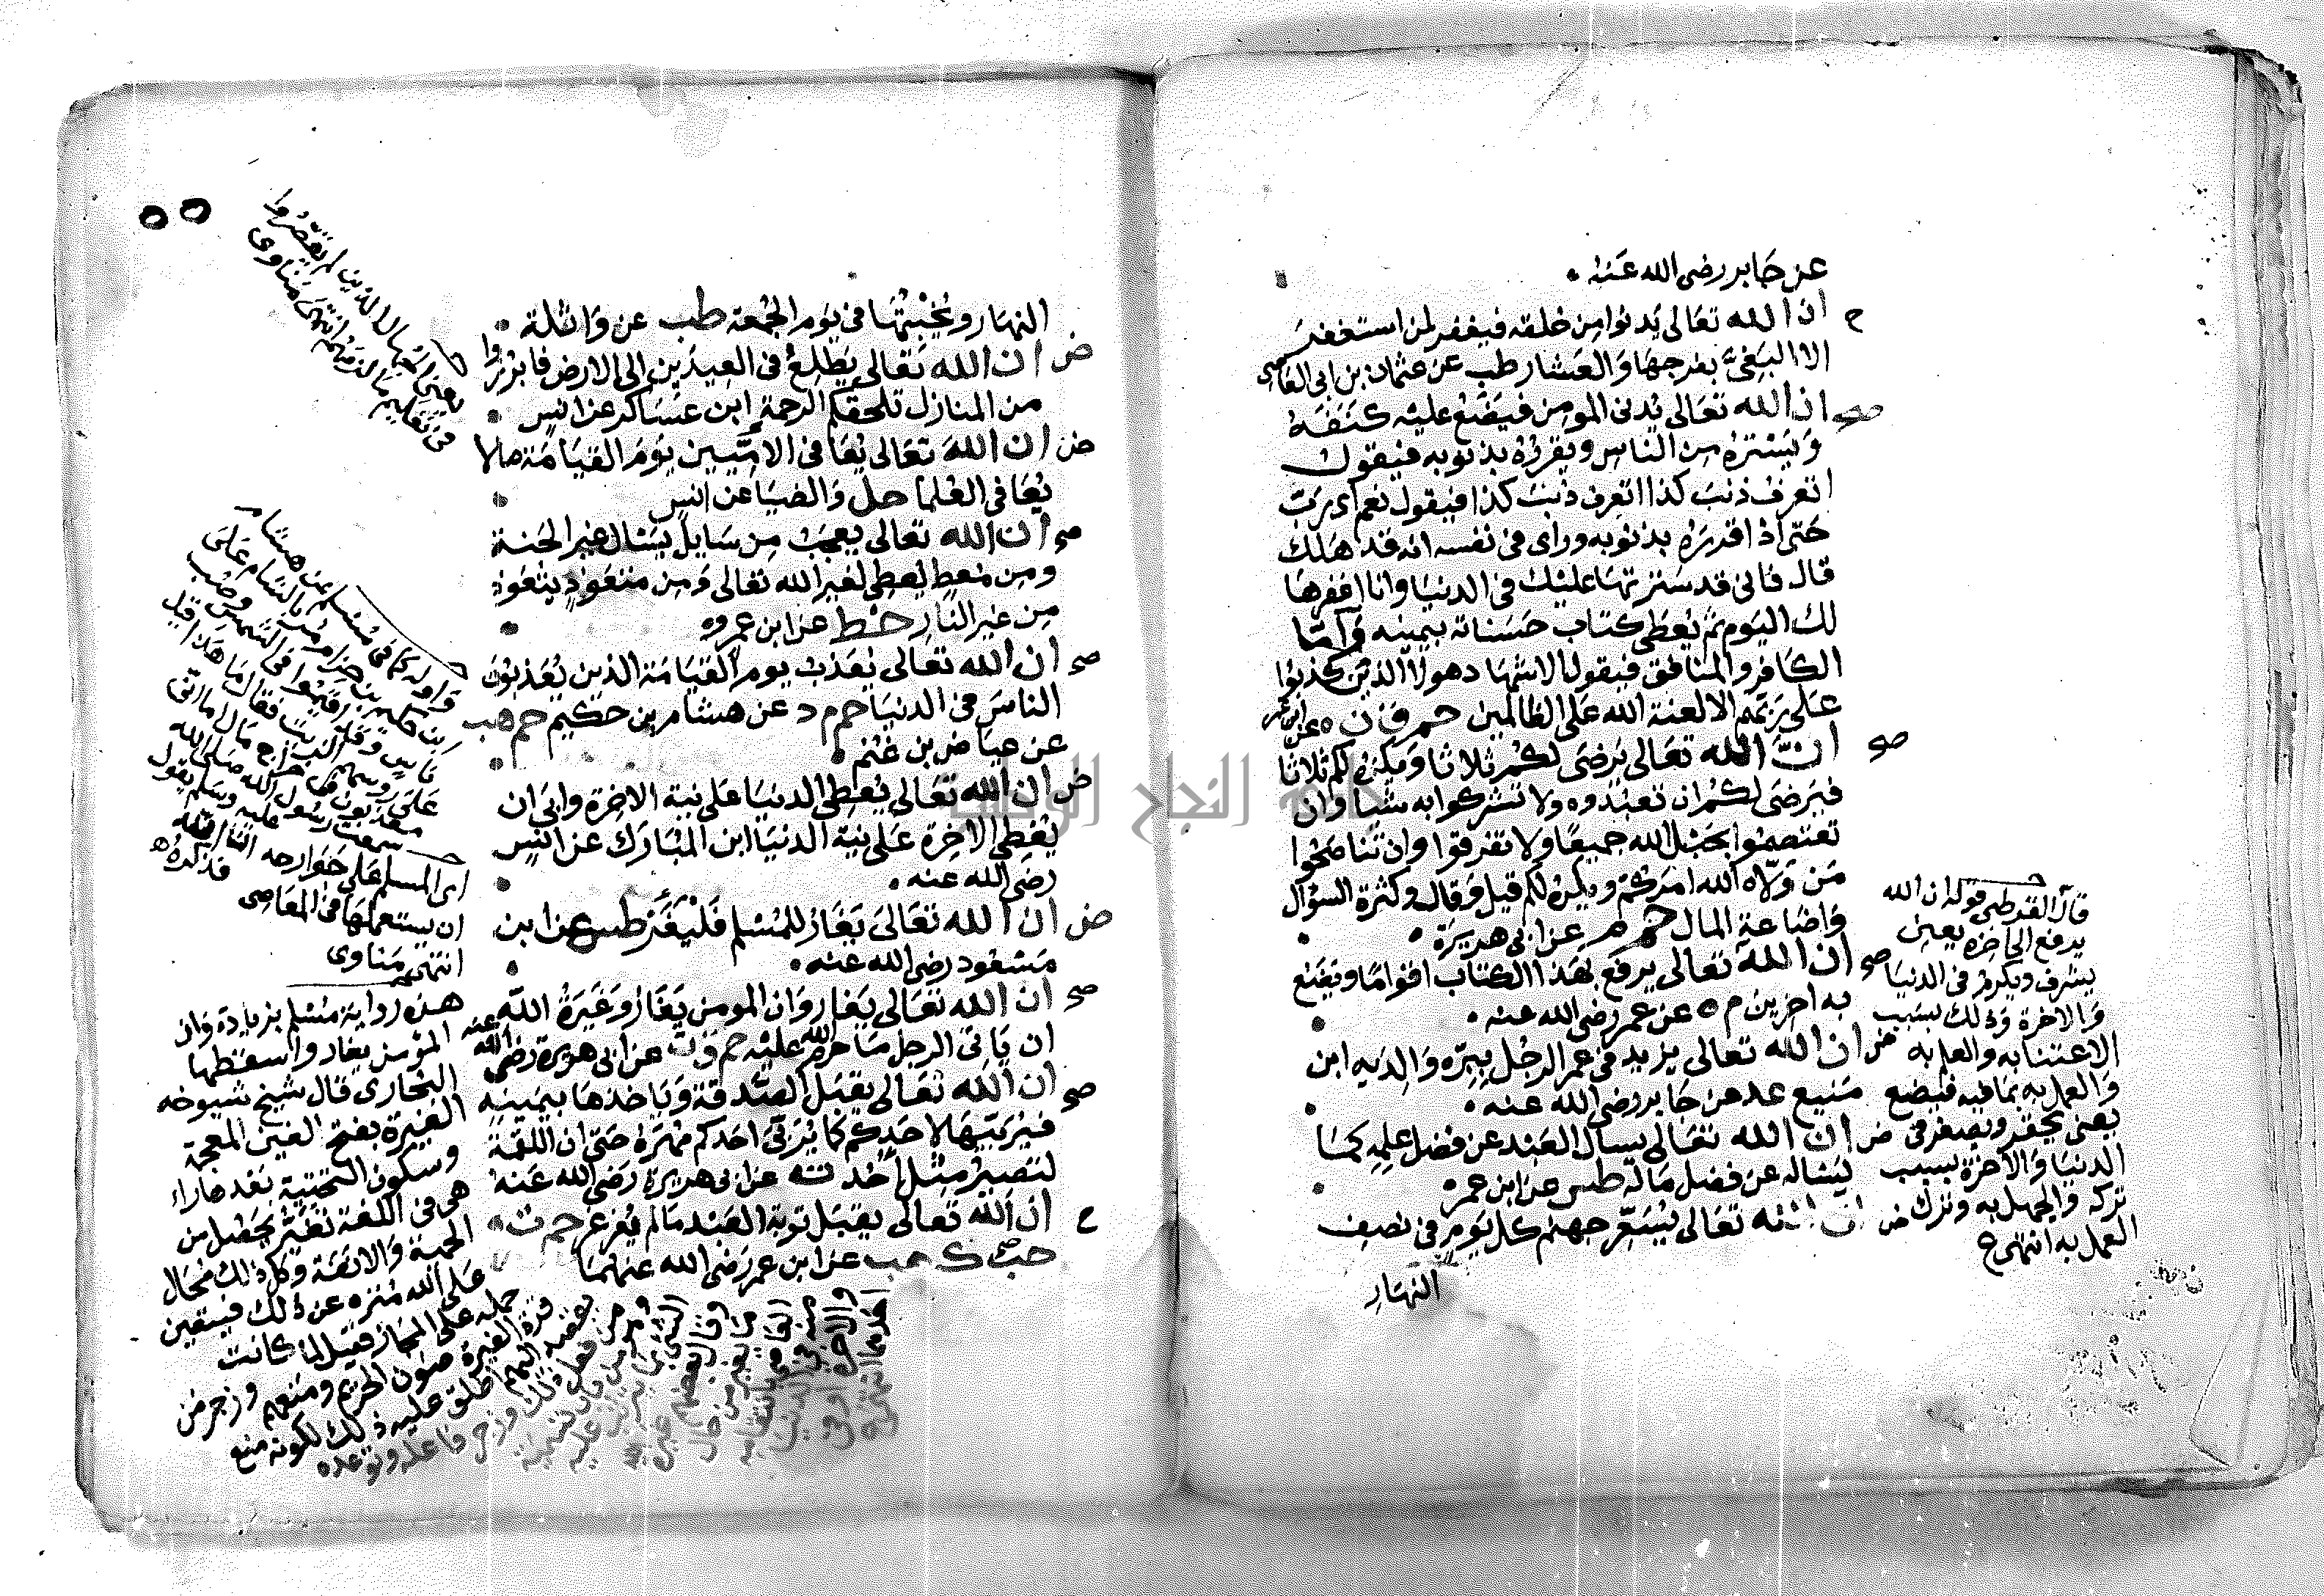 عن جابر رضى الله عنه
ح ان الله تعالى يدنوا من خلقه فيغفر لمن استغفر
الا البغي بفرجها والعشار طب عن عثمان بن ابى العاصى
صح ان الله تعالى يدنى المومن فيضع عليه كنفه
ويستره من الناس ويقرره بذنوبه فيقول
اتعرف ذنب كذا اتعرف ذنب كذا فيقول نعم اى رب
حتى اذا قرره بذنوبه وراى فى نفسه انه قد هلك
قال فانى قد سترتها عليك فى الدنيا وانا اغفرها
لك اليوم ثم يعطى كتاب حسناته بيمينه واما
الكافر والمنافق فيقول الاشهاد هولاء الذين كذبوا
على ربهم الا لعنة الله على الظالمين حم ق ن ه عن ابن عمر
صح ان الله تعالى يرضى لكم ثلاثا ويكره لكم ثلاثا
فيرضى لكم ان تعبدوه ولا تشركوا به شيا وان
تعتصموا بحبل الله جميعا ولا تفرقوا وان تناصحوا
من ولاه الله امركم ويكره لكم قيل وقال وكثرة السؤال
واضاعة المال حم م عن ابى هريرة
صح ان الله تعالى يرفع بهذا الكتاب اقواما ويضع
به اخرين م ه عن عمر رضى الله عنه
ض ان الله تعالى يزيد فى عمر الرجل ببره والديه ابن
منيع عد عن جابر رضى الله عنه
ض ان الله تعالى يسال العبد عن فضل علمه كما
يساله عن فضل ماله طس عن ابن عمر
ض ان الله تعالى يسعر جهنم كل يوم فى نصف
النهار
قال القرطبى قوله ان الله
يرفع الى اخره يعنى
يشرف ويكرم فى الدنيا
والاخرة وذلك بسبب
الاعتنا به والعلم به
والعمل به بما فيه فيضع
يعنى يحقر ويصغر فى
الدنيا والاخرة بسبب
تركه والجهل به وترك
العمل به انتهى ع
النهار ويخبتها فى يوم الجمعة طب عن واثلة
ض ان الله تعالى يطلع فى العيدين الى الارض فابرزوا
من المنازل تلحقكم الرحمة ابن عساكر عن انس
ض ان الله تعالى يعافى الاميين يوم القيامة مالا
يعافى العلما حل والضيا عن انس
صح ان الله تعالى يعجب من سايل يسال غير الجنة
ومن معط يعطى لغير الله تعالى ومن متعوذ يتعوذ
من غير النار خط عن ابن عمرو
صح ان الله تعالى يعذب يوم القيامة الذين يعذبون
الناس فى الدنيا حم م د عن هشام بن حكيم حم هب
عن عياض بن غنم
ض ان الله تعالى يعطى الدنيا على نية الاخرة وابى ان
يعطى الاخرة على نية الدنيا ابن المبارك عن انس
رضى الله عنه
ض ان الله تعالى يغار للمسلم فليغر طس عن ابن
مسعود رضى الله عنه
صح ان الله تعالى يغار وان المومن يغار وغيرة الله
ان ياتى الرجل ما حرم الله عليه حم ق ت عن ابى هريرة رضى الله عنه
صح ان الله تعالى يقبل الصدقة وياخذها بيمينه
فيربيها لاحدكم كما يربى احدكم مهره حتى ان اللقمة
لتصير مثل احد ت عن ابى هريرة رضى الله عنه
ح ان الله تعالى يقبل توبة العبد مالم يغرغر حم ت ه
حب ك هب عن ابن عمر رضى الله عنهما
يعنى الجهال الذين لم يقصروا
فى تعليم ما لزمهم انتهى مناوى
قوله كما فى مسلم عن هشام
ابن حكيم بن حزام مر بالشام على
ناس وقد اقيموا فى الشمس وصب
على روسهم الزيت فقال ما هذا قيل
يعذبون فى خراج فقال اما انى
سمعت رسول الله صلى الله
عليه وسلم يقول
فذكره
اى المسلم على جوارحه
ان يستعملها فى المعاصى
انتهى مناوى
هذه رواية مسلم بزيادة وان
المؤمن يغار واسقطها
البخارى قال شيخ شيوخه
الغيرة بفتح الغين المعجمة
وسكون التحتية بعدها راء
هى فى اللغة تغير يحصل من
الحمية والانفة وكل ذلك محال
على الله منزه عن ذلك فيتعين
حمله على المجاز فقيل لما كانت
ثمرة الغيرة صون الحريم ومنعهم وزجر من
يقصد اليهم اطلق عليه ذلك لكونه منع
جامعة النجاح الوطنية